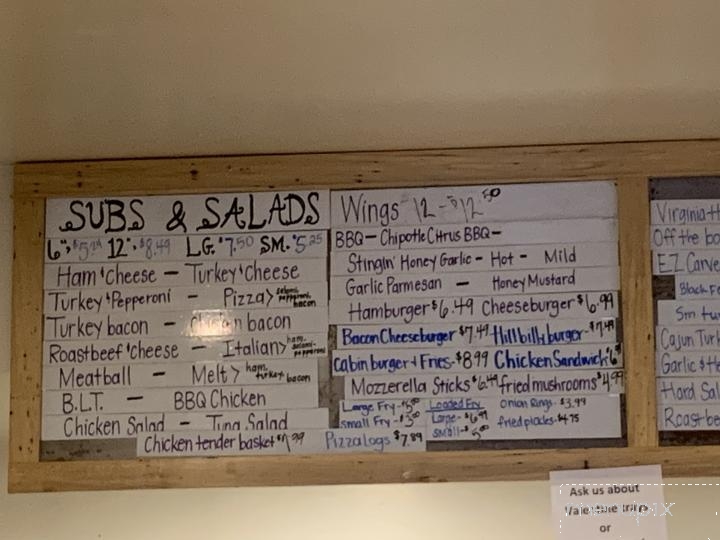 SUBS & SALADS
6", 12", $8.49 LG. $7.50 SM. $5.25
Ham & Cheese — Turkey & Cheese
Turkey & Pepperoni — Pizza > salami pepperoni bacon
Turkey bacon — Chicken bacon
Roastbeef & cheese — Italian > ham salami pepperoni
Meatball — Melt > ham turkey bacon
B.L.T. — BBQ Chicken
Chicken Salad — Tuna Salad
Chicken tender basket
Wings 12 — $12.50
BBQ — Chipotle Citrus BBQ —
Stingin' Honey Garlic - Hot - Mild
Garlic Parmesan — Honey Mustard
Hamburger $6.49 Cheeseburger $6.99
Bacon Cheeseburger $7.49 Hillbilly burger - $7.49
Cabin burger + Fries - $8.99 Chicken Sandwich
Mozzerella Sticks $6.49 fried mushrooms $4.99
Large Fry
Small Fry
Loaded Fry
Large - $6.99
Small -
Onion Rings - $3.99
fried pickles - $4.75
Pizza logs $7.89
Virginia
Off the bo
EZ Carve
Black F
Sm tu
Cajun Turk
Garlic & He
Hard Sal
Roast be
Ask us about
Valentine trays
or